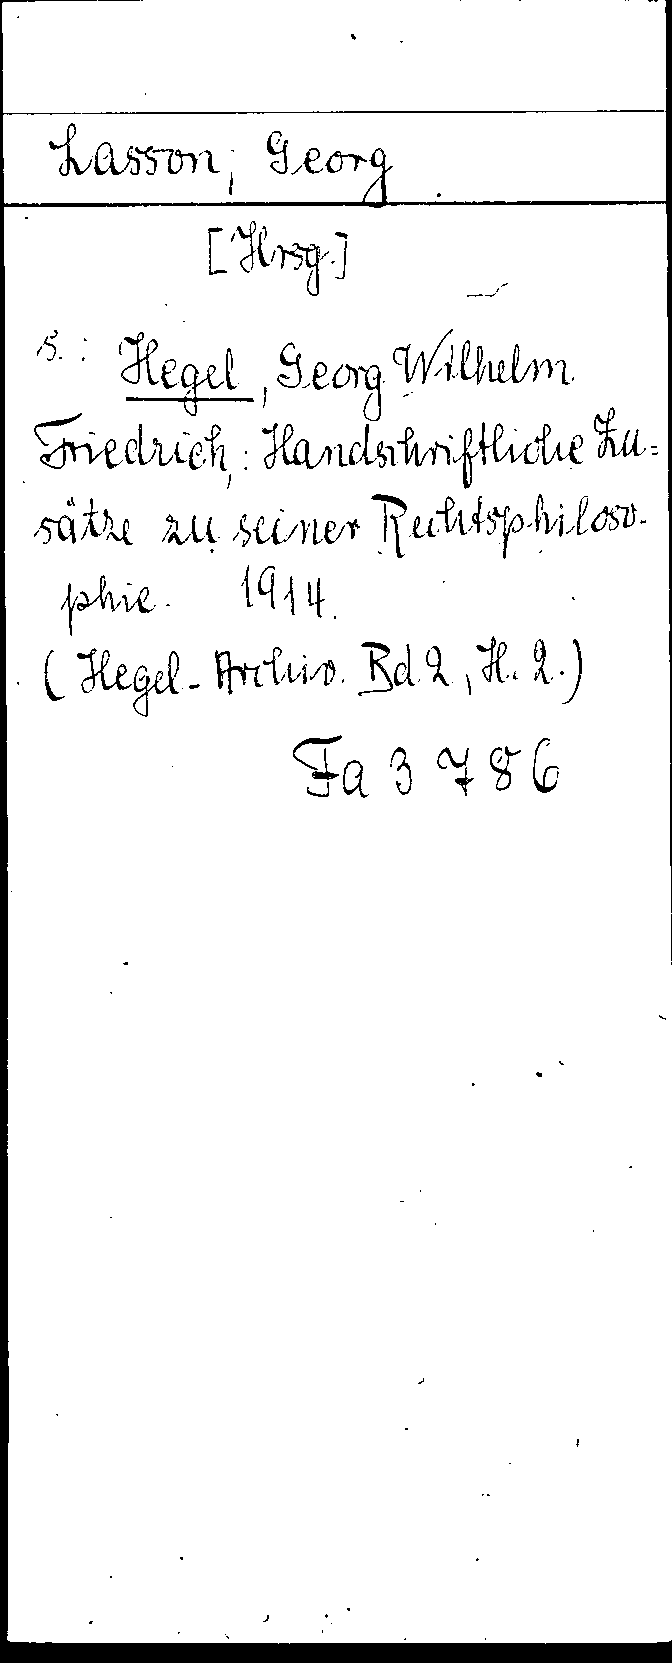 Lasson, Georg
[Hrsg.]
s.: Hegel, Georg Wilhelm
Friedrich,: Handschriftliche Zu=
sätze zu seiner Rechtsphiloso-
phie. 1914.
(Hegel-Archiv. Bd. 2, H. 2.)
Fa 3 786